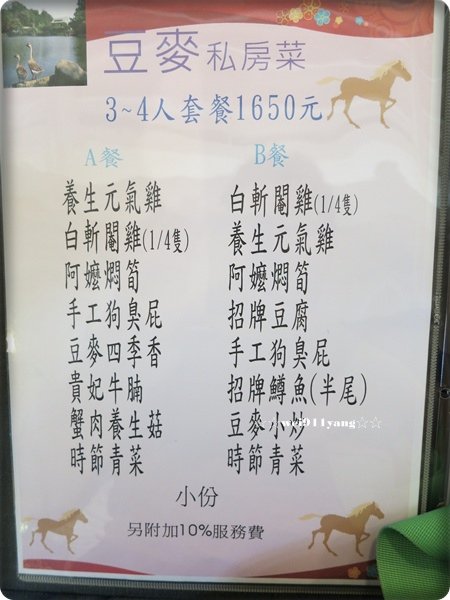 豆麥私房菜
3~4人套餐1650元
A餐
養生元氣雞
白斬閹雞(1/4隻)
阿嬤燜筍
手工狗臭屁
豆麥四季香
貴妃牛腩
蟹肉養生菇
時節青菜
B餐
白斬閹雞(1/4隻)
養生元氣雞
阿嬤燜筍
招牌豆腐
手工狗臭屁
招牌鱒魚(半尾)
豆麥小炒
時節青菜
小份
另附加10%服務費